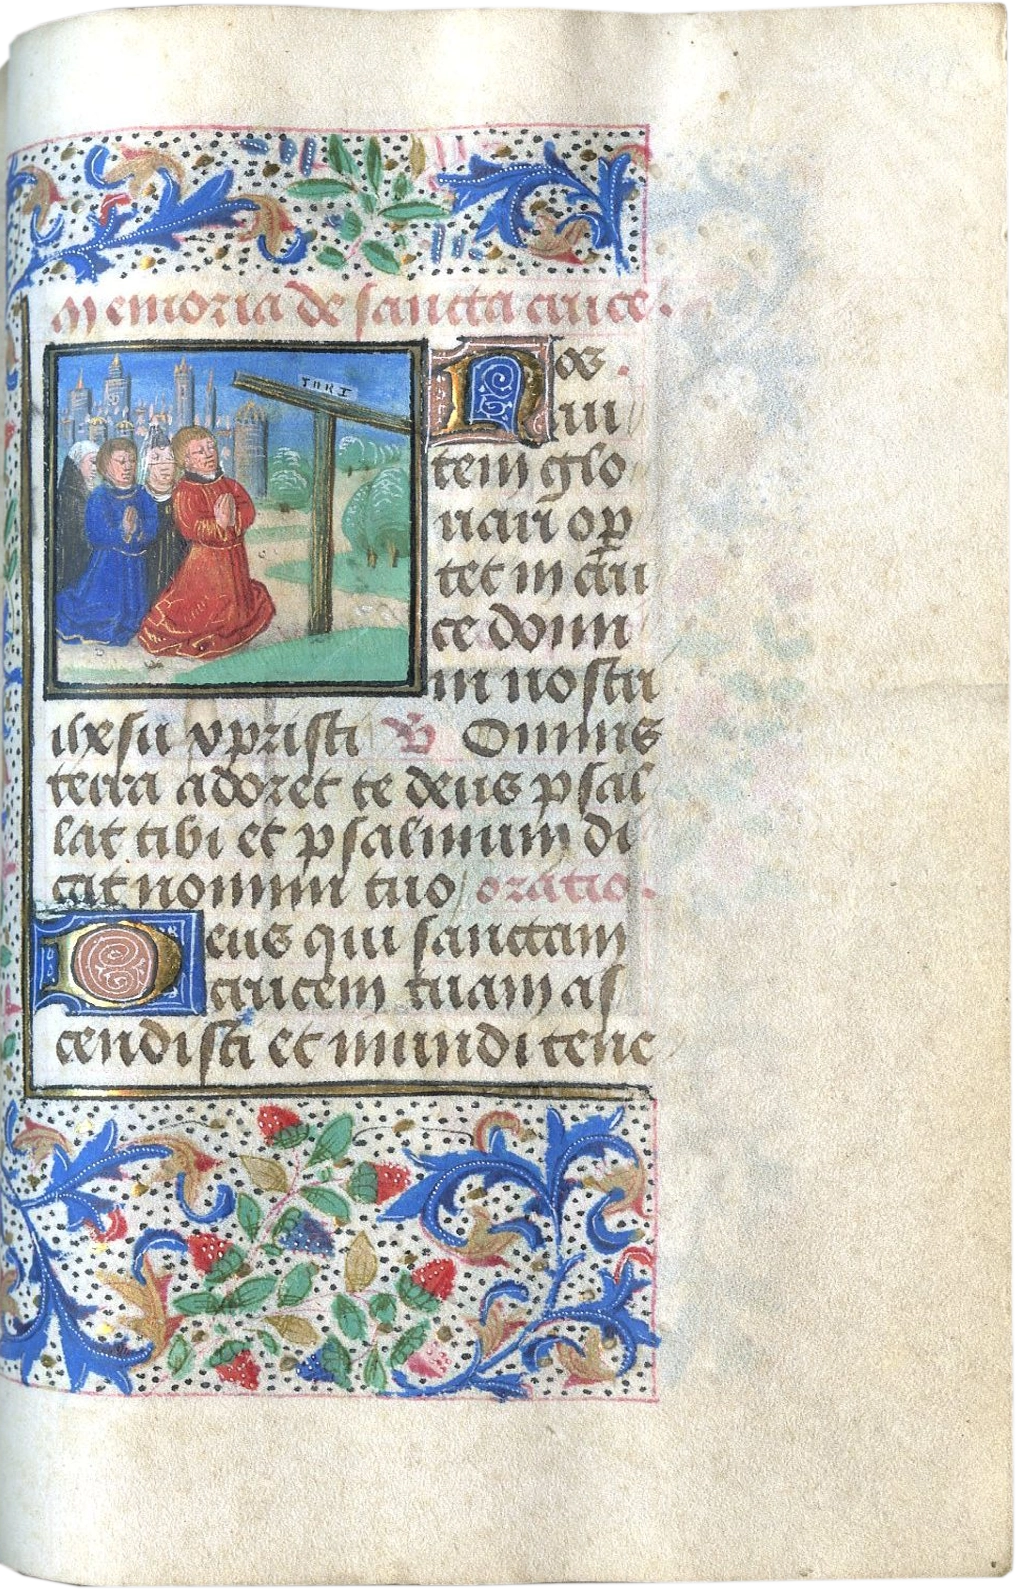 Memoria de sancta cruce.
INRI
Nos.
aū
tem glo
riari op̄
tet in cru
ce domi
ni nostri
ihesu xpristi ℣ Omnis
terra adoret te deus psal
lat tibi et psalmum di
cat nomini tuo oratio.
Deus qui sanctam
crucem tuam as
cendisti et mundi tene